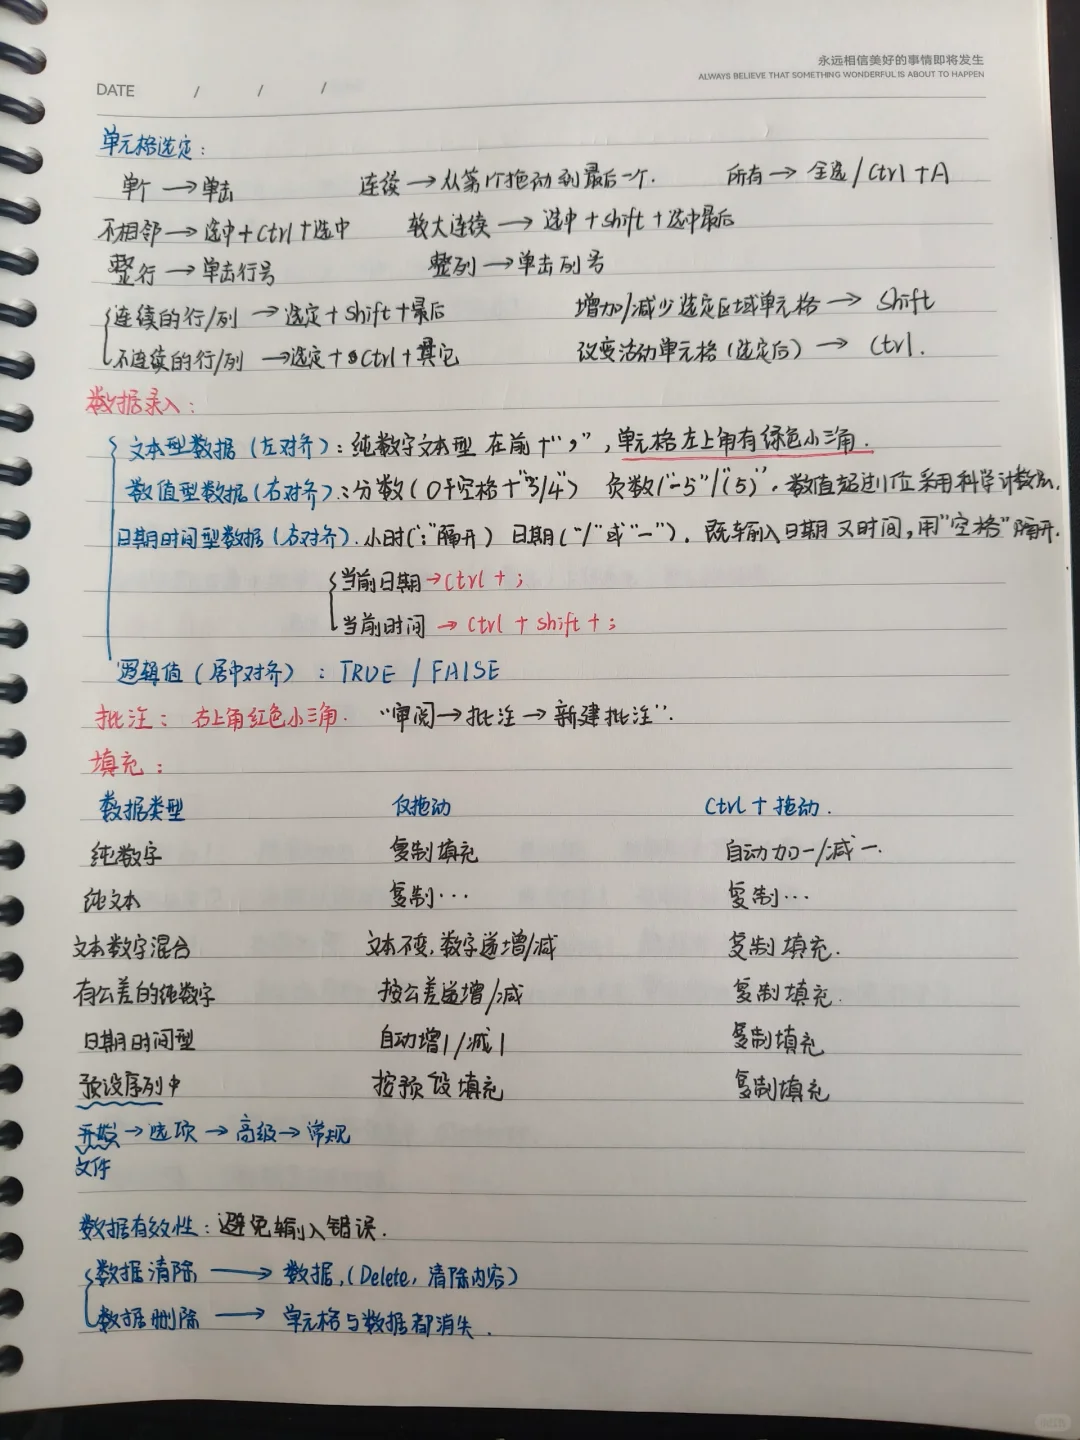 永远相信美好的事情即将发生
ALWAYS BELIEVE THAT SOMETHING WONDERFUL IS ABOUT TO HAPPEN
DATE / / /
单元格选定:
单个→单击 连续→从第1个拖动到最后一个. 所有→全选/Ctrl+A
不相邻→选中+Ctrl+选中 较大连续→选中+shift+选中最后
整行→单击行号 整列→单击列号
连续的行/列→选定+shift+最后 增加/减少选定区域单元格→Shift
不连续的行/列→选定+Ctrl+其它 改变活动单元格(选定后)→Ctrl.
数据录入:
文本型数据(左对齐):纯数字文本型 在前+“,”,单元格左上角有绿色小三角.
数值型数据(右对齐):分数(0+空格+"3/4") 负数("-5"/"(5)".数值超过11位采用科学计数法.
日期时间型数据(右对齐).小时(":"隔开) 日期("/"或"-"). 既输入日期又时间,用"空格"隔开.
当前日期→Ctrl+;
当前时间→Ctrl+shift+;
逻辑值(居中对齐):TRUE/FAlSE
批注:右上角红色小三角. “审阅→批注→新建批注”.
填充:
数据类型 仅拖动 Ctrl+拖动.
纯数字 复制填充 自动加一/减一.
纯文本 复制… 复制…
文本数字混合 文本不变,数字递增/减 复制填充.
有公差的纯数字 按公差递增/减 复制填充.
日期时间型 自动增1/减1 复制填充
预设序列中 按预设填充 复制填充
开始→选项→高级→常规
文件
数据有效性:避免输入错误.
数据清除→数据,(Delete,清除内容)
数据删除→单元格与数据都消失.